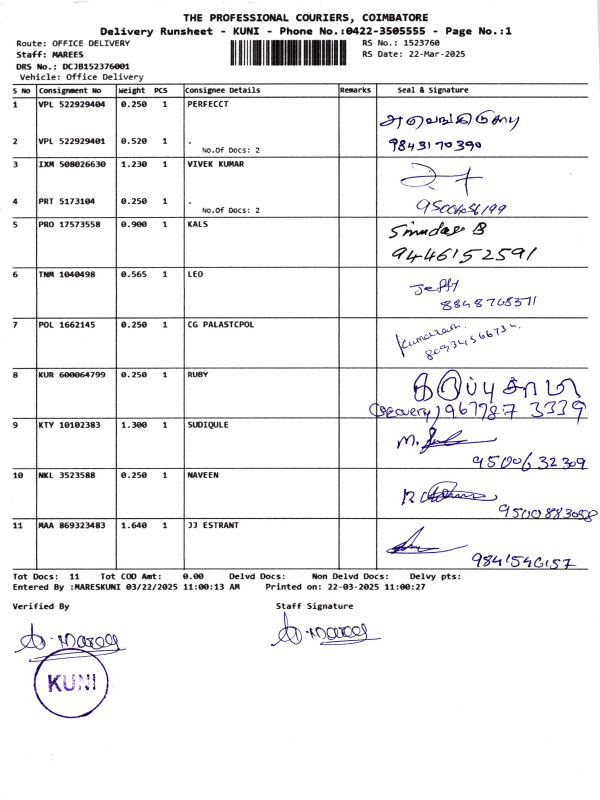 THE PROFESSIONAL COURIERS, COIMBATORE
Delivery Runsheet - KUNI - Phone No.:0422-3505555 - Page No.:1
Route: OFFICE DELIVERY RS No.: 1523760
Staff: MAREES RS Date: 22-Mar-2025
DRS No.: DCJB152376001
Vehicle: Office Delivery
S No Consignment No Weight PCS Consignee Details Remarks Seal & Signature
1 VPL 522929404 0.250 1 PERFECCT
2 VPL 522929401 0.520 1 . 9843170390
No.Of Docs: 2
3 IXM 508026630 1.230 1 VIVEK KUMAR
4 PRT 5173104 0.250 1 .
No.Of Docs: 2
5 PRO 17573558 0.900 1 KALS
9446152591
6 TNM 1040498 0.565 1 LEO Jeffy
8848708371
7 POL 1662145 0.250 1 CG PALASTCPOL Kumaran.
8 KUR 600064799 0.250 1 RUBY கருப்புசாமி
967787 3339
9 KTY 10102383 1.300 1 SUDIQULE M.
9500632309
10 NKL 3523588 0.250 1 NAVEEN
9500883058
11 MAA 869323483 1.640 1 JJ ESTRANT
9841546157
Tot Docs: 11 Tot COD Amt: 0.00 Delvd Docs: Non Delvd Docs: Delvy pts:
Entered By :MARESKUNI 03/22/2025 11:00:13 AM Printed on: 22-03-2025 11:00:27
Verified By Staff Signature
KUNI